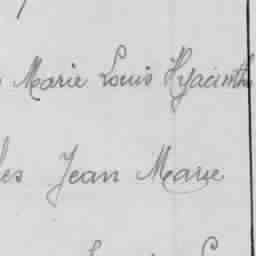 Marie Louis Hyacinth
les Jean Marie